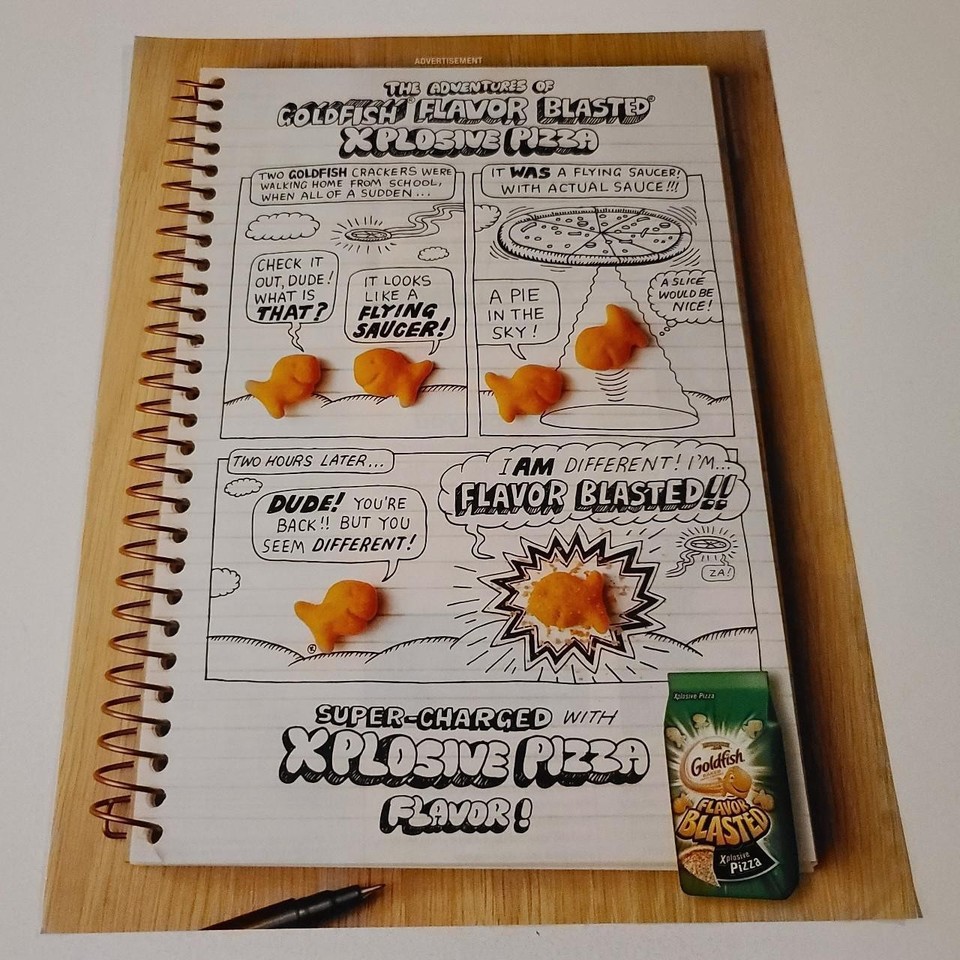 ADVERTISEMENT
THE ADVENTURES OF
GOLDFISH® FLAVOR BLASTED®
XPLOSIVE PIZZA
TWO GOLDFISH CRACKERS WERE
WALKING HOME FROM SCHOOL,
WHEN ALL OF A SUDDEN...
CHECK IT
OUT, DUDE!
WHAT IS
THAT?
IT LOOKS
LIKE A
FLYING
SAUCER!
IT WAS A FLYING SAUCER!
WITH ACTUAL SAUCE!!!
A PIE
IN THE
SKY!
A SLICE
WOULD BE
NICE!
TWO HOURS LATER...
DUDE! YOU'RE
BACK!! BUT YOU
SEEM DIFFERENT!
I AM DIFFERENT! I'M...
FLAVOR BLASTED!!
ZA!
SUPER-CHARGED WITH
XPLOSIVE PIZZA
FLAVOR!
Xplosive Pizza
Goldfish
FLAVOR
BLASTED
Xplosive
Pizza